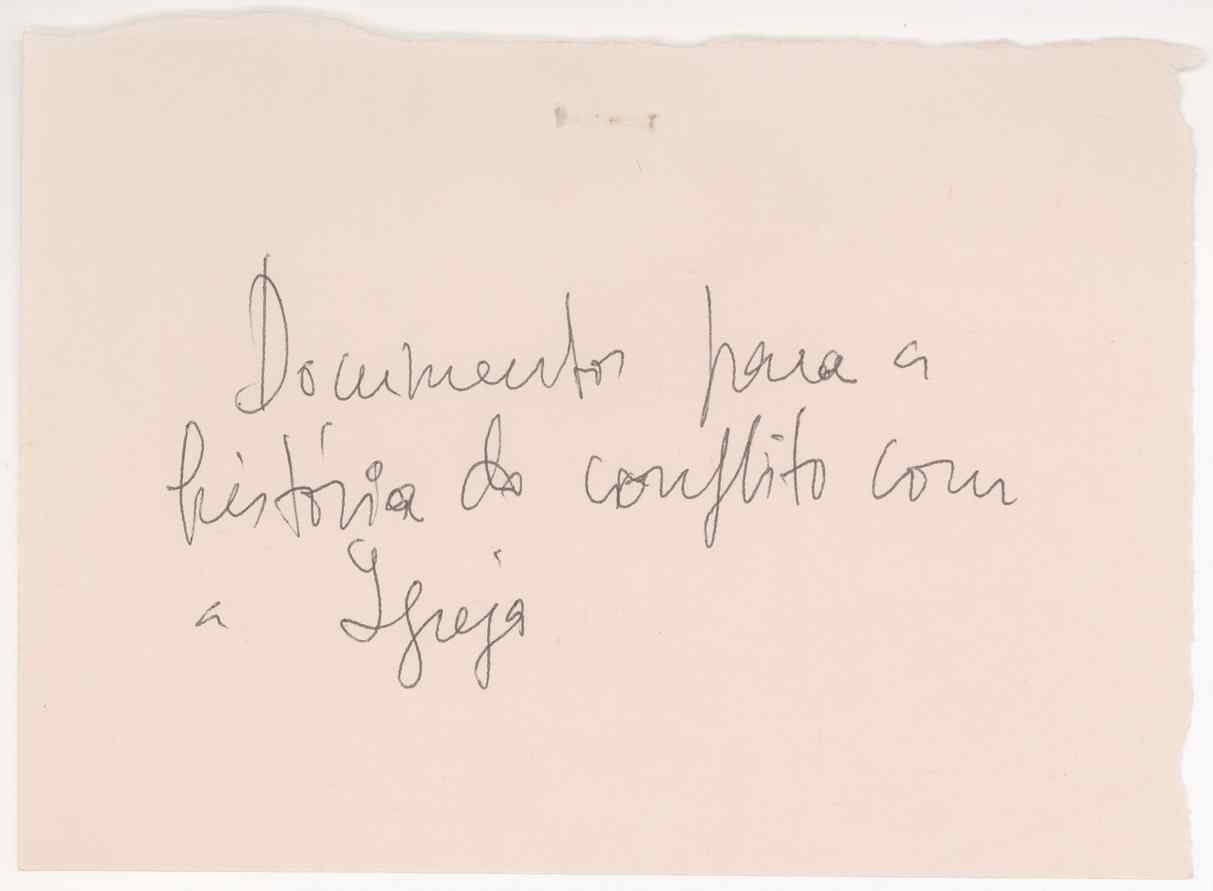 Documentos para a
história do conflito com
a Igreja